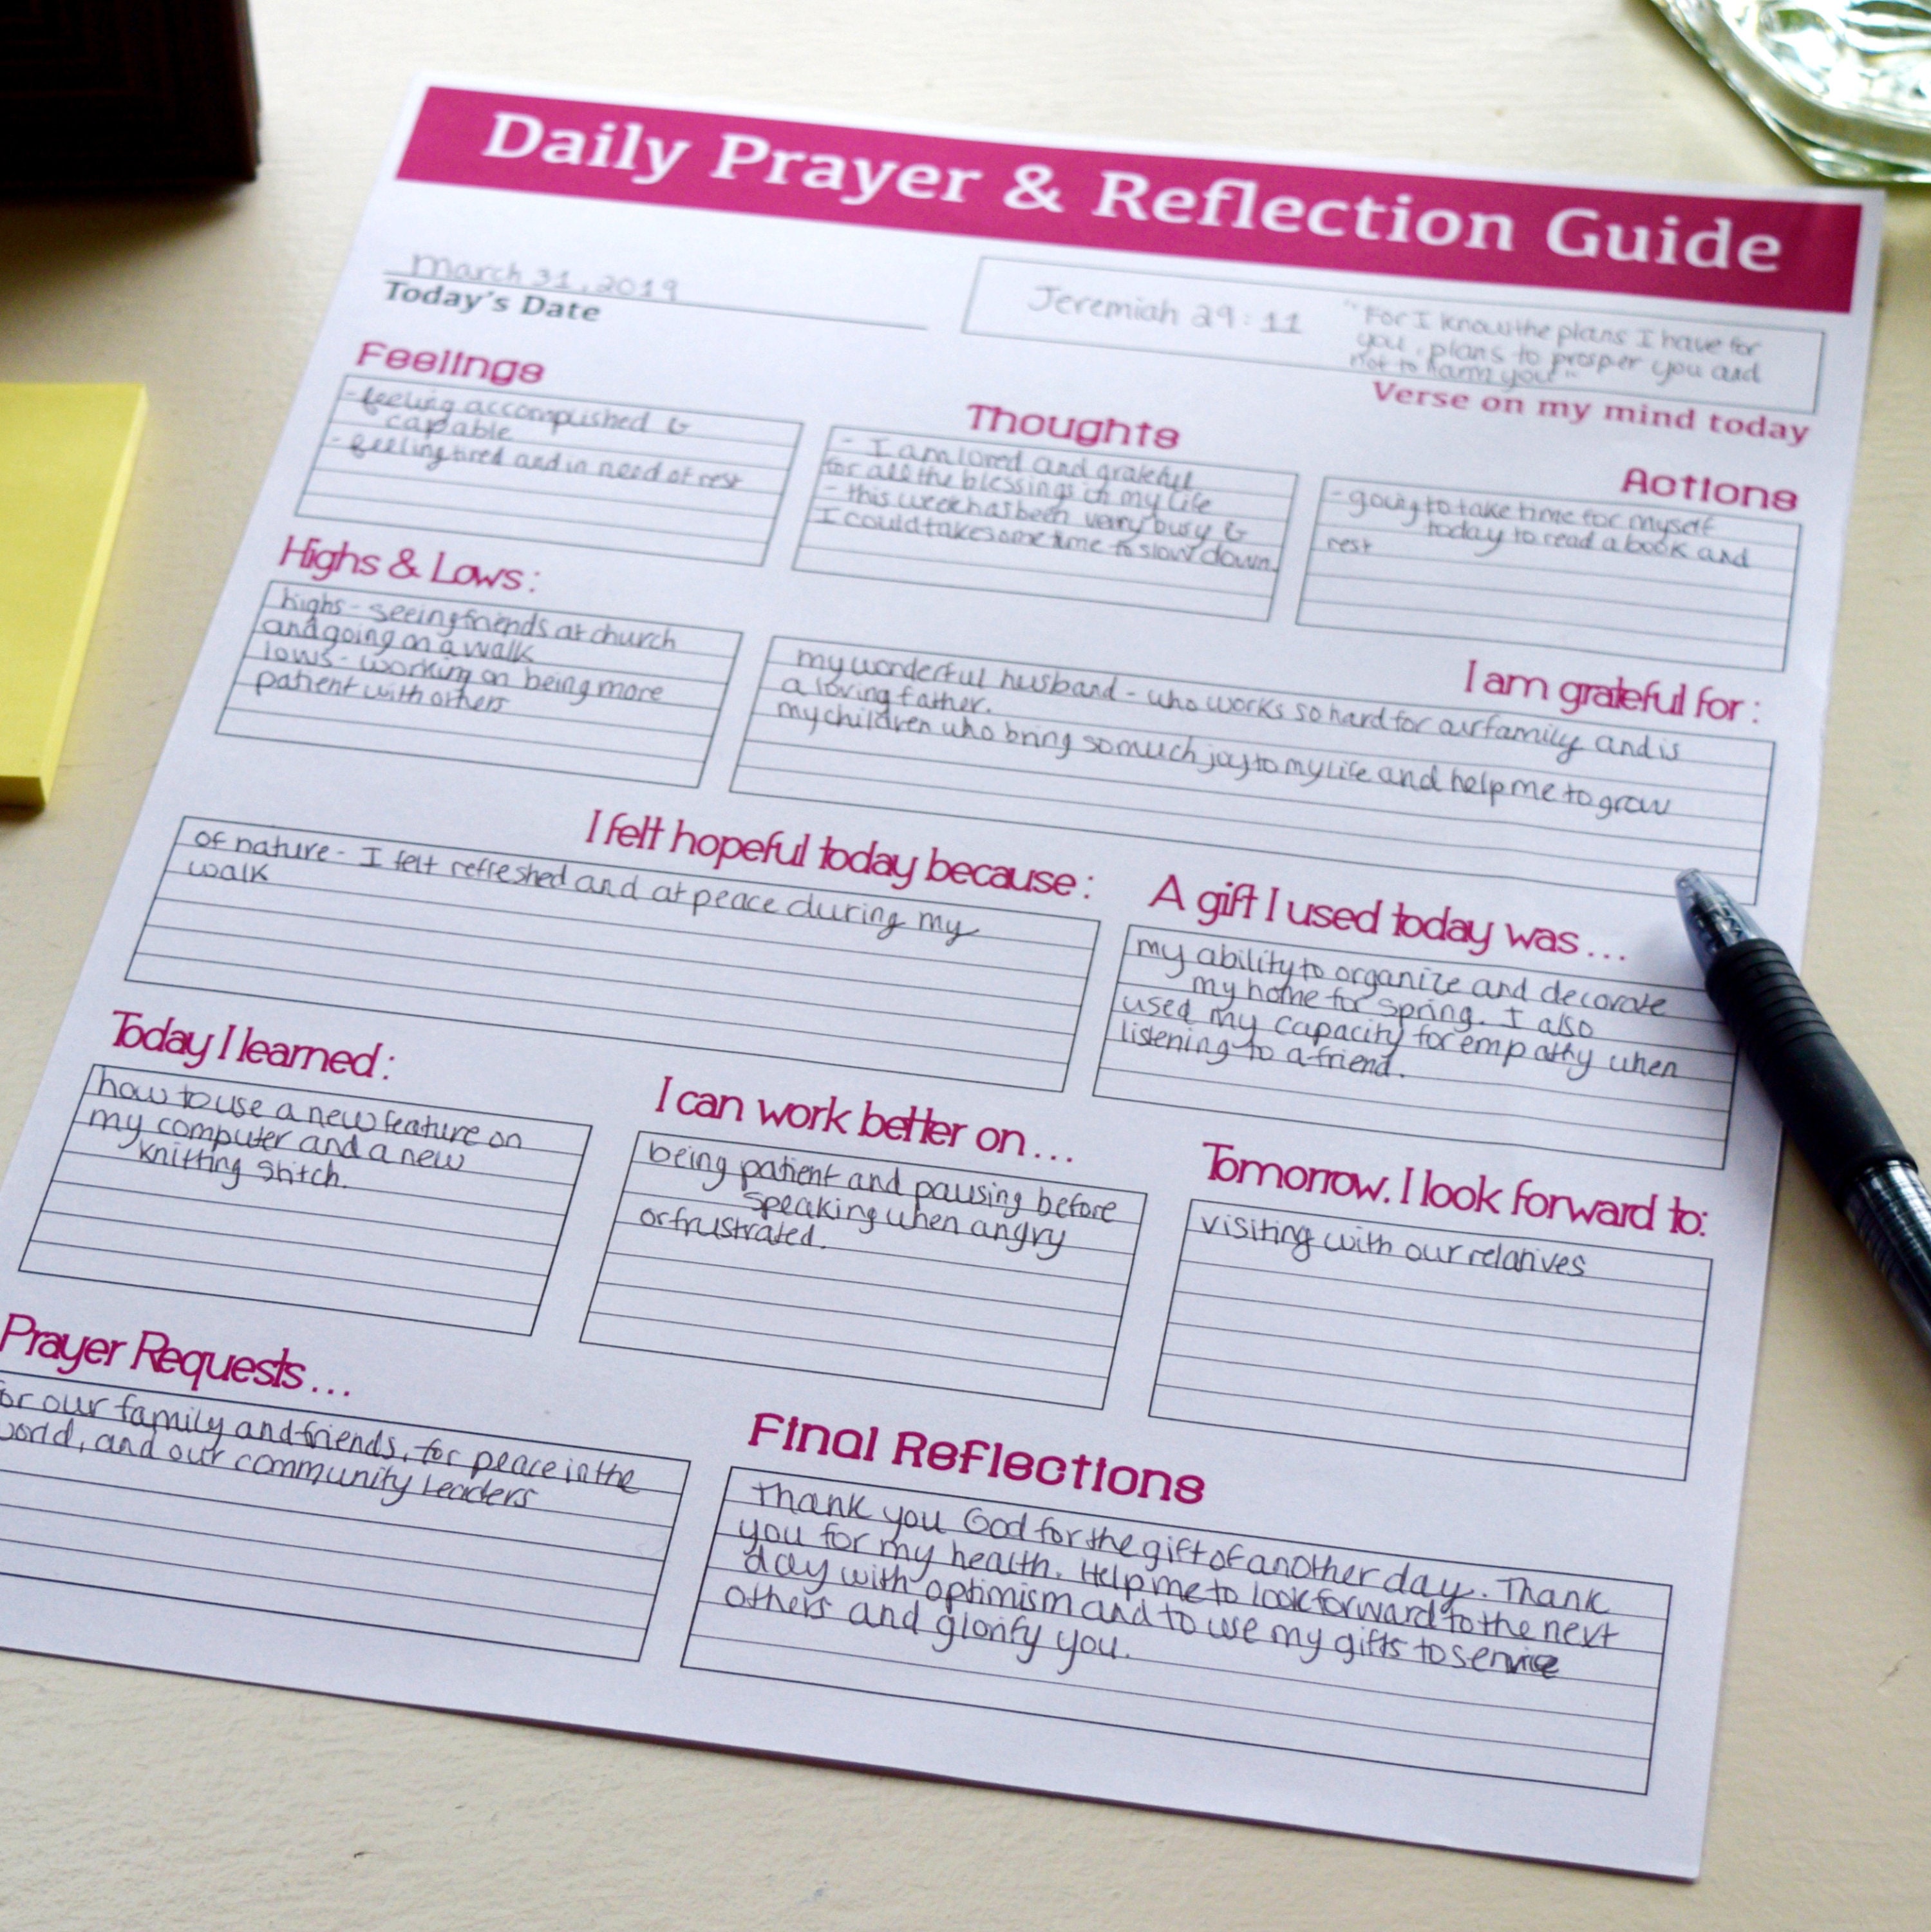 Daily Prayer & Reflection Guide
March 31, 2019
Today's Date
Jeremiah 29:11
"For I know the plans I have for
you, plans to prosper you and
not to harm you"
Verse on my mind today
Feelings
- feeling accomplished &
capable
- feeling tired and in need of rest
Thoughts
- I am loved and grateful
for all the blessings in my life
- this week has been very busy &
I could take some time to slow down.
Actions
- going to take time for myself
today to read a book and
rest
Highs & Lows:
highs - seeing friends at church
and going on a walk
lows - working on being more
patient with others
I am grateful for:
my wonderful husband - who works so hard for our family and is
a loving father.
my children who bring so much joy to my life and help me to grow
I felt hopeful today because:
of nature - I felt refreshed and at peace during my
walk
A gift I used today was...
my ability to organize and decorate
my home for spring. I also
used my capacity for empathy when
listening to a friend.
Today I learned:
how to use a new feature on
my computer and a new
knitting stitch.
I can work better on...
being patient and pausing before
speaking when angry
or frustrated.
Tomorrow, I look forward to:
visiting with our relatives
Prayer Requests...
or our family and friends, for peace in the
world, and our community leaders
Final Reflections
Thank you God for the gift of another day. Thank
you for my health. Help me to look forward to the next
day with optimism and to use my gifts to service
others and glorify you.